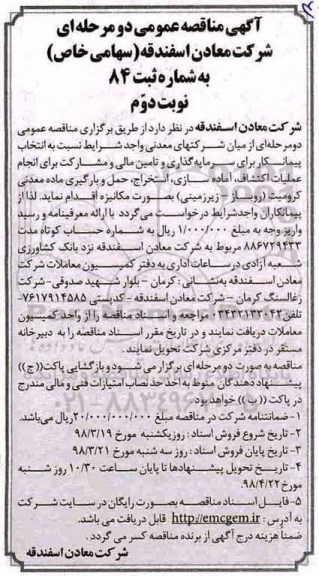 آگهی مناقصه عمومی دو مرحله ای
شرکت معادن اسفندقه (سهامی خاص)
به شماره ثبت ۸۴
نوبت دوّم
شرکت معادن اسفندقه در نظر دارد از طریق برگزاری مناقصه عمومی
دو مرحله ای از میان شرکتهای معدنی واجد شرایط نسبت به انتخاب
پیمانکار برای سرمایه گذاری و تامین مالی و مشارکت برای انجام
عملیات اکتشاف، آماده سازی، استخراج، حمل و بارگیری ماده معدنی
کرومیت (روباز – زیرزمینی) بصورت مکانیزه اقدام نماید. لذا از
پیمانکاران واجدشرایط درخواست می گردد با ارائه معرفینامه و رسید
واریز وجه به مبلغ ۱/۰۰۰/۰۰۰ ریال به شماره حساب کوتاه مدت
۸۸۶۷۲۹۴۳۳ مربوط به شرکت معادن اسفندقه نزد بانک کشاورزی
شعبه آزادی در ساعات اداری به دفتر کمیسیون معاملات شرکت
معادن اسفندقه به نشانی : کرمان – بلوار شهید صدوقی- شرکت
زغالسنگ کرمان – شرکت معادن اسفندقه - کدپستی ۷۶۱۷۹۱۴۵۸۵-
تلفن ۰۳۴۳۲۱۳۲۰۴۲ مراجعه و اسناد مناقصه را از واحد کمیسیون
معاملات دریافت نمایند و در تاریخ مقرر اسناد مناقصه را به دبیرخانه
مستقر در دفتر مرکزی شرکت تحویل نمایند.
مناقصه به صورت دو مرحله ای برگزار می شود و بازگشایی پاکت ((ج))
پیشنهاد دهندگان منوط به اخذ حد نصاب امتیازات فنی و مالی مندرج
در پاکت (( ب)) خواهد بود.
۱- ضمانتنامه شرکت در مناقصه مبلغ ۲۰/۰۰۰/۰۰۰/۰۰۰ ریال می باشد.
۲- تاریخ شروع فروش اسناد : روز یکشنبه مورخ ۹۸/۳/۱۹
۳- تاریخ پایان فروش اسناد : روز سه شنبه مورخ ۹۸/۳/۲۱
۴- تاریخ تحویل پیشنهادها تا پایان ساعت ۱۰/۳۰ روز شنبه
مورخ ۹۸/۴/۲۲.
۵- فایل اسناد مناقصه بصورت رایگان در سایت شرکت
به آدرس : http://emcgem.ir قابل دریافت می باشد.
ضمناً هزینه درج آگهی از برنده مناقصه کسر می گردد .
شرکت معادن اسفندقه